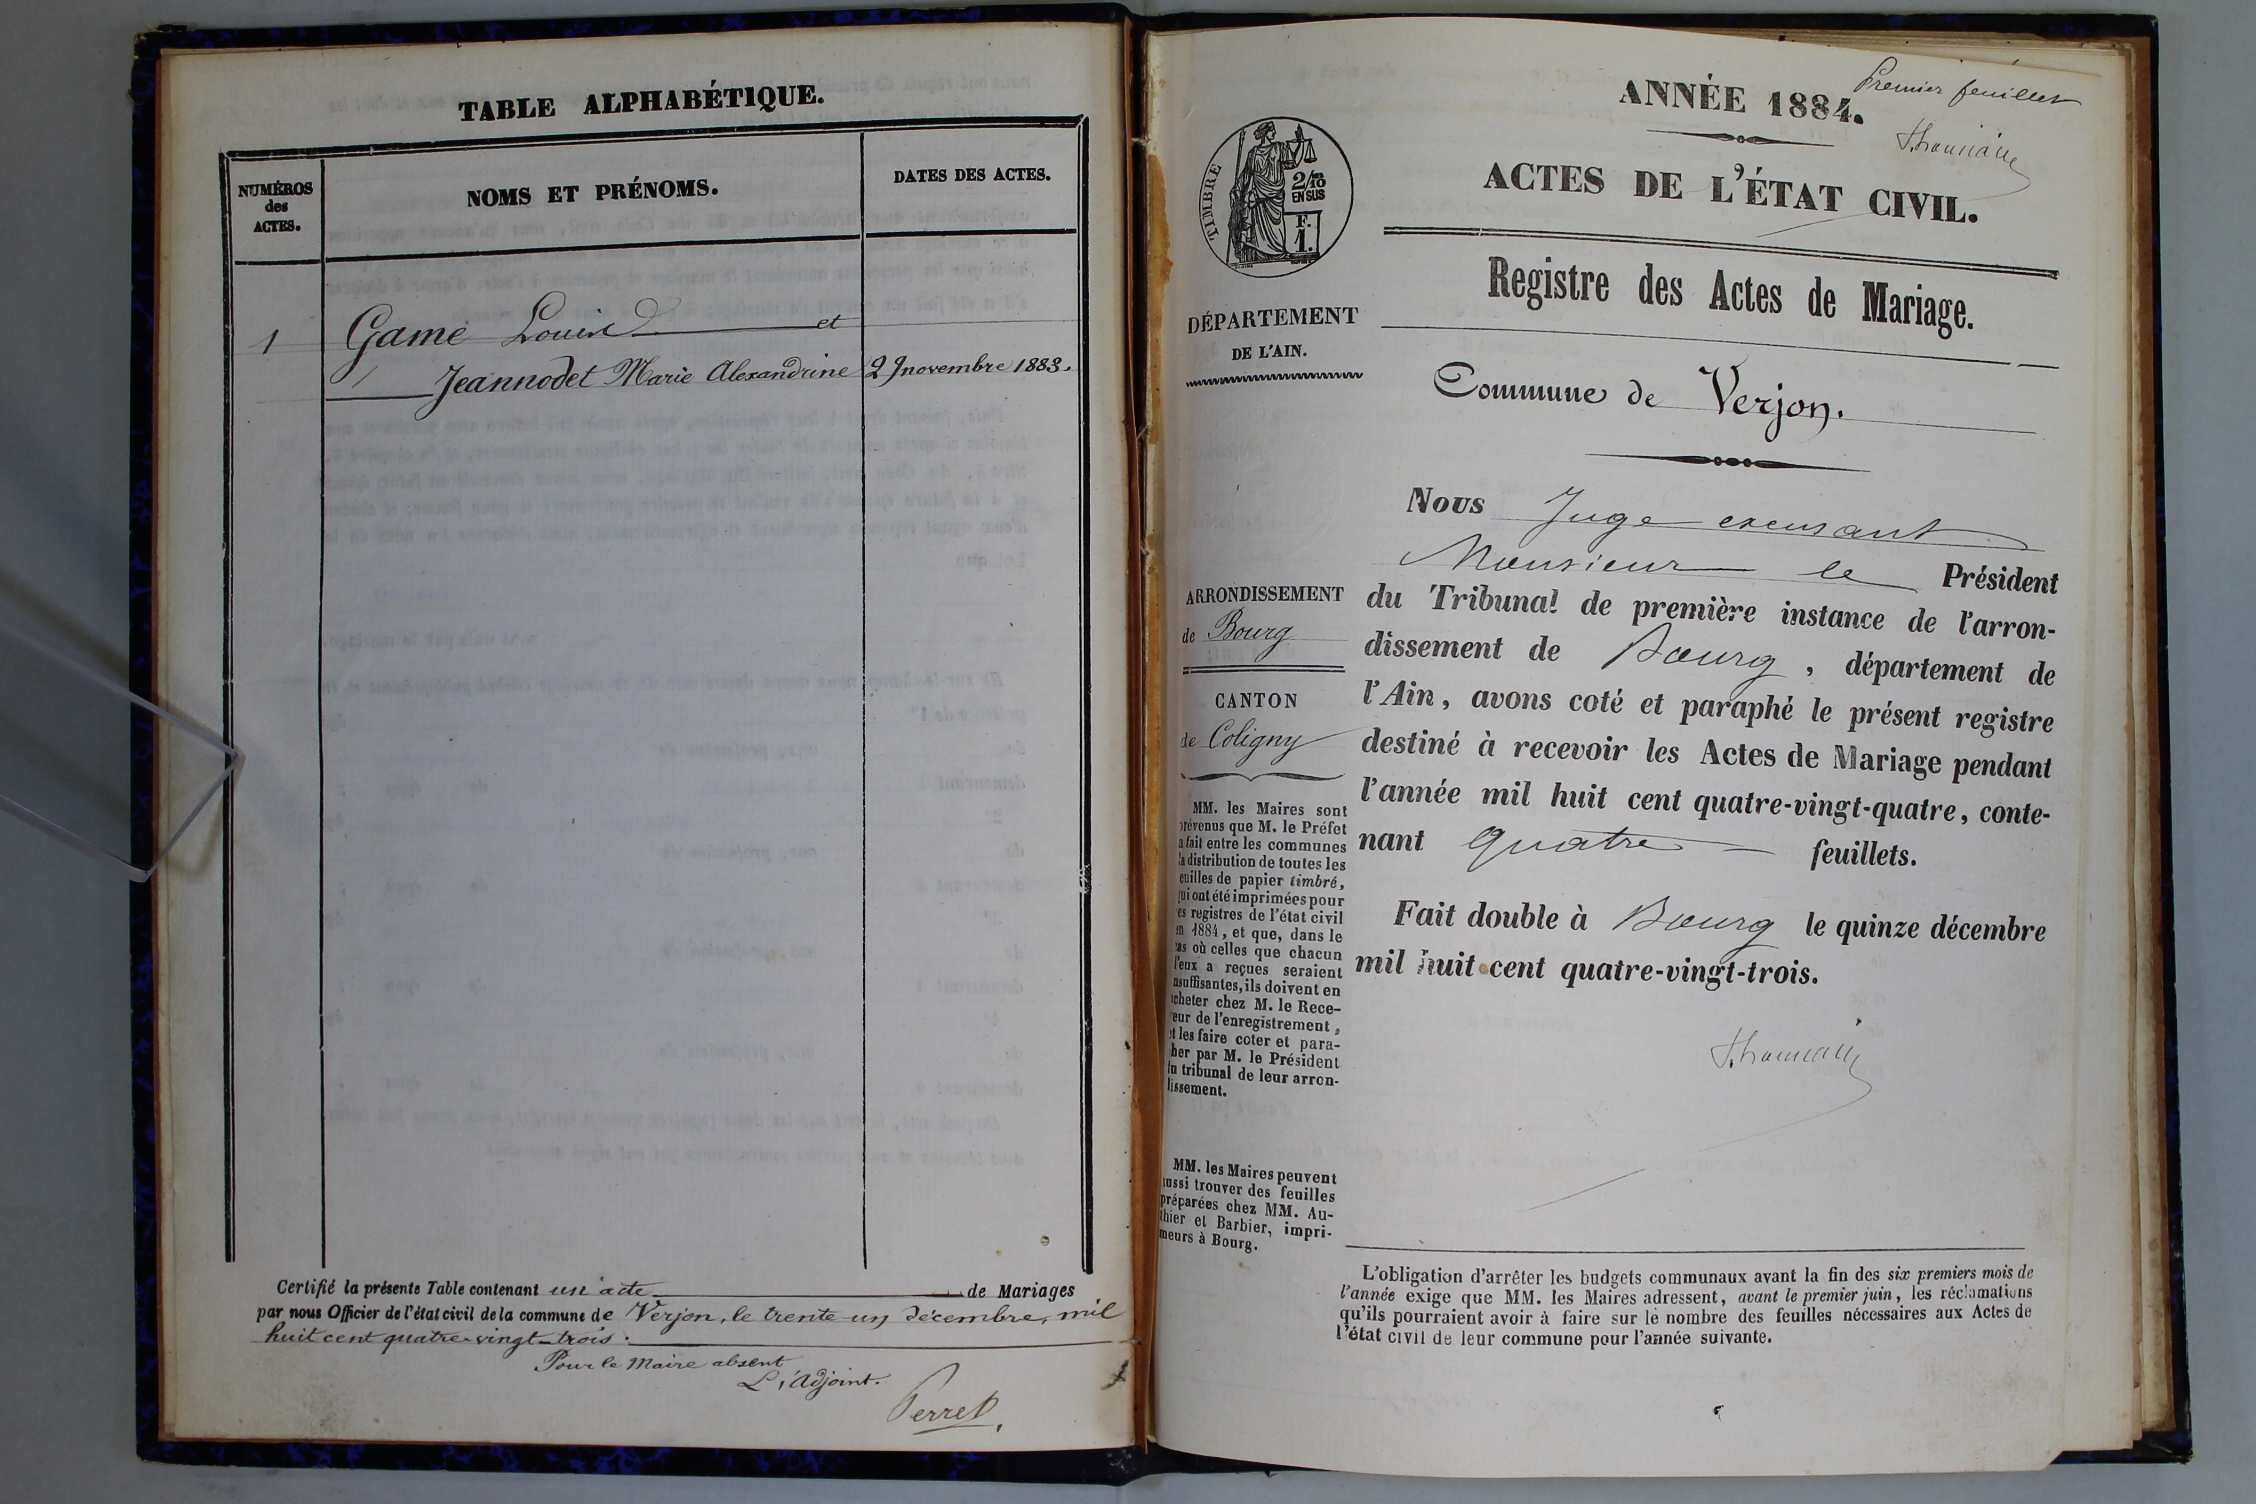 TABLE ALPHABÉTIQUE.
NUMÉROS
des
ACTES.
NOMS ET PRÉNOMS.
DATES DES ACTES.
1
Game Louis et
Jeannodet Marie Alexandrine
29 novembre 1883.
Certifié la présente Table contenant un acte de Mariages
par nous Officier de l'état civil de la commune de Verjon, le trente-un décembre, mil
huit cent quatre-vingt-trois.
Pour le Maire absent
L'Adjoint.
Perret
Premier feuillet
ANNÉE 1884.
ACTES DE L'ÉTAT CIVIL.
Registre des Actes de Mariage.
Commune de Verjon.
TIMBRE
2/10
EN SUS
F.
1.
DÉPARTEMENT
DE L'AIN.
ARRONDISSEMENT
de Bourg
CANTON
de Coligny
MM. les Maires sont
prévenus que M. le Préfet
a fait entre les communes
la distribution de toutes les
feuilles de papier timbré,
qui ont été imprimées pour
les registres de l'état civil
en 1884, et que, dans le
cas où celles que chacun
d'eux a reçues seraient
insuffisantes, ils doivent en
acheter chez M. le Rece-
veur de l'enregistrement,
et les faire coter et para-
pher par M. le Président
du tribunal de leur arron-
dissement.
MM. les Maires peuvent
aussi trouver des feuilles
préparées chez MM. Au-
thier et Barbier, impri-
meurs à Bourg.
Nous Juge excusant
Monsieur le Président
du Tribunal de première instance de l'arron-
dissement de Bourg, département de
l'Ain, avons coté et paraphé le présent registre
destiné à recevoir les Actes de Mariage pendant
l'année mil huit cent quatre-vingt-quatre, conte-
nant quatre feuillets.
Fait double à Bourg le quinze décembre
mil huit cent quatre-vingt-trois.
L'obligation d'arrêter les budgets communaux avant la fin des six premiers mois de
l'année exige que MM. les Maires adressent, avant le premier juin, les réclamations
qu'ils pourraient avoir à faire sur le nombre des feuilles nécessaires aux Actes de
l'état civil de leur commune pour l'année suivante.